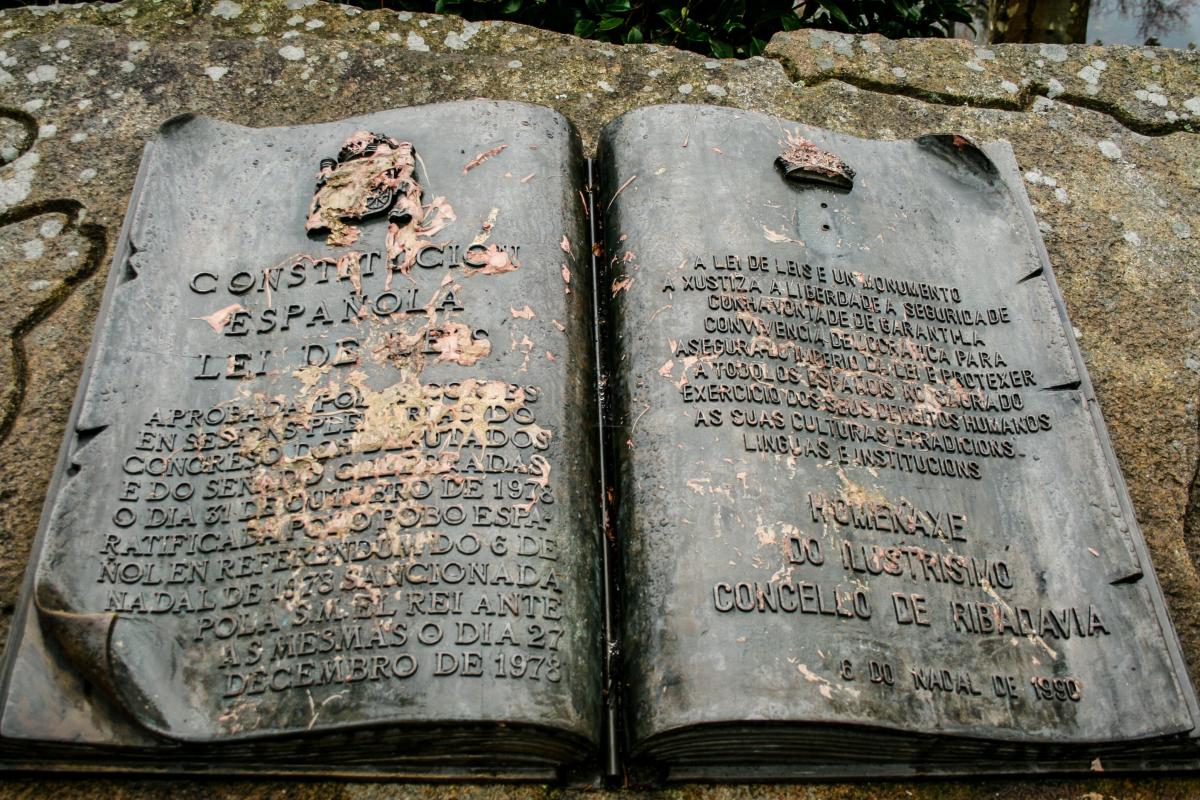 CONSTITUCION
ESPAÑOLA
LEI DE LEIS
APROBADA POLAS CORTES
EN SESIONS PLENARIAS DO
CONGRESO DE DEPUTADOS
E DO SENADO CELEBRADAS
O DIA 31 DE OUTUBRO DE 1978
RATIFICADA POLO POBO ESPA-
ÑOL EN REFERENDUM DO 6 DE
NADAL DE 1978 SANCIONADA
POLA S.M. EL REI ANTE
AS MESMAS O DIA 27
DECEMBRO DE 1978
A LEI DE LEIS E UN MONUMENTO
A XUSTIZA A LIBERDADE A SEGURIDA DE
CONHA VONTADE DE GARANTI-LA
CONVIVENCIA DEMOCRATICA PARA
ASEGURA-LO IMPERIO DE LEI E PROTEXER
A TODOL OS ESPAÑOIS NO SAGRADO
EXERCICIO DOS SEUS DEREITOS HUMANOS
AS SUAS CULTURAS E TRADICIONS
LINGUAS E INSTITUCIONS
HOMENAXE
DO ILUSTRISIMO
CONCELLO DE RIBADAVIA
6 DO NADAL DE 1990